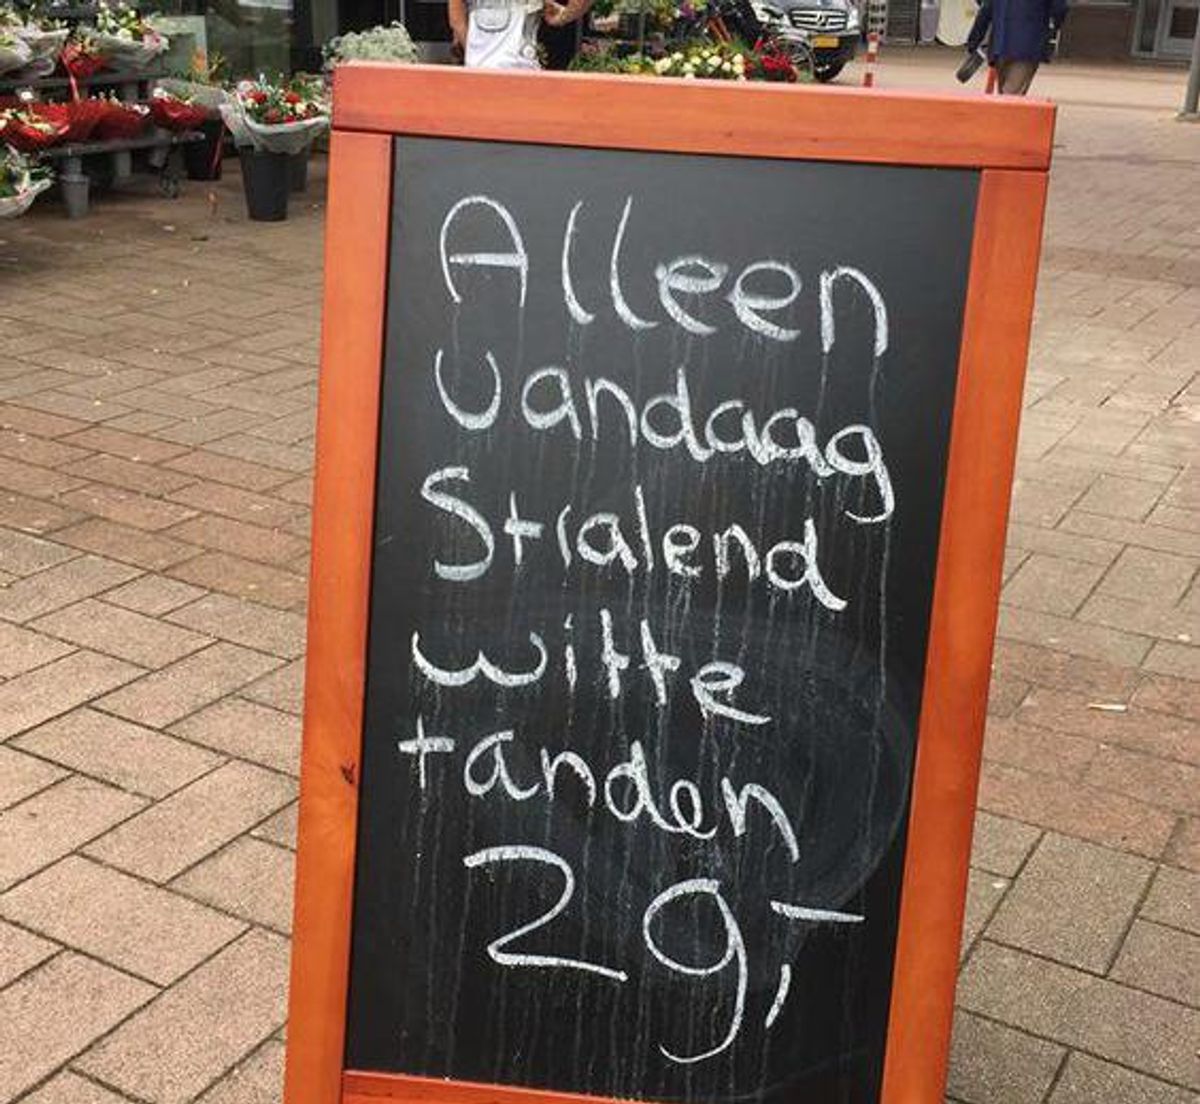 Alleen
vandaag
Stralend
witte
tanden
29,-